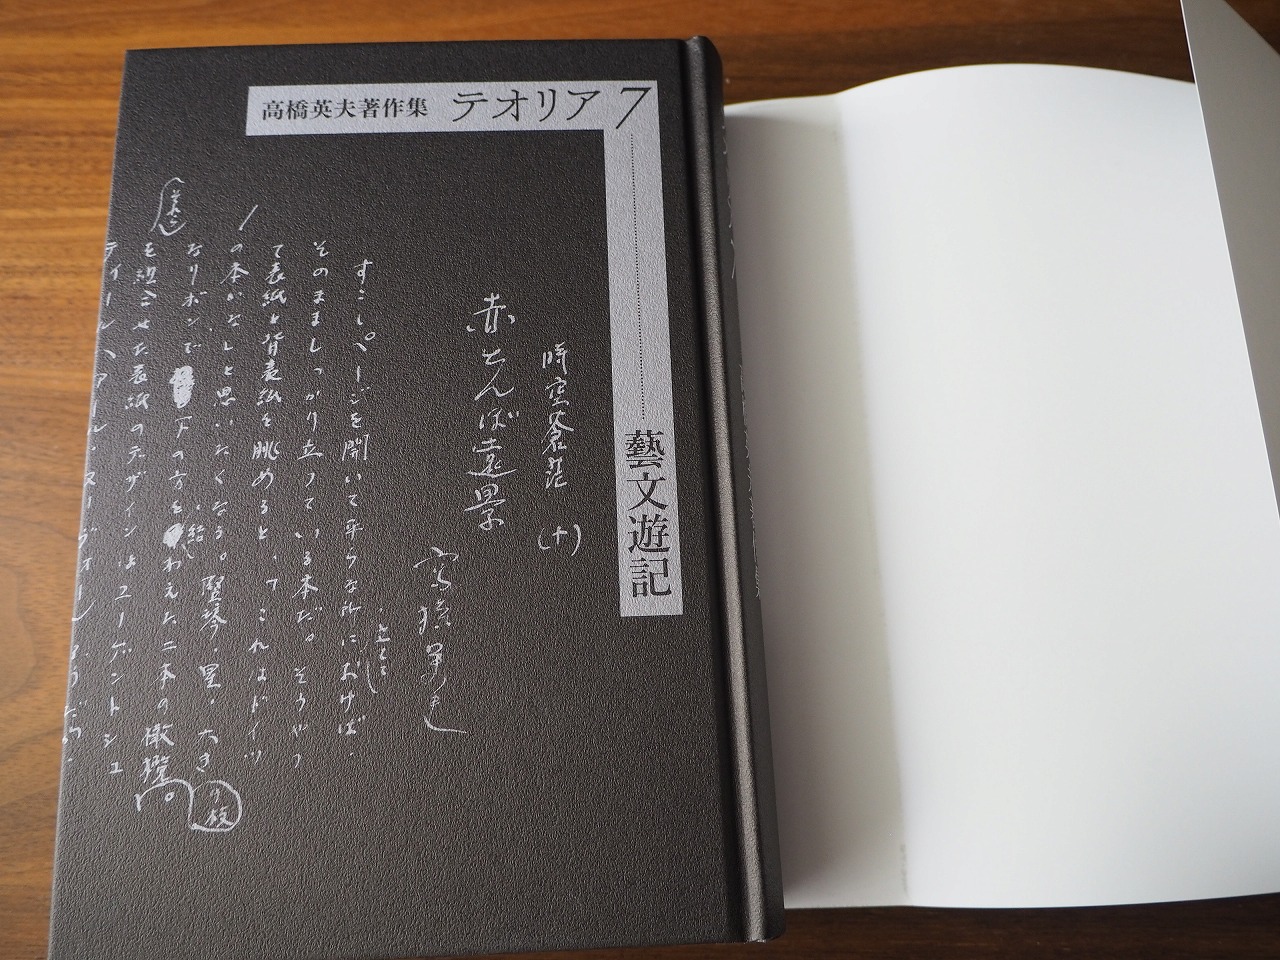 高橋英夫著作集 テオリア 7
藝文遊記
時空蒼茫 (十)
赤とんぼ遠景
高橋英夫
すこしページを開いて平らな所におけば、
立てて
そのまましっかり立っている本だ。そうやっ
て表紙と背表紙を眺めると、
これはドイツ
の本だな、と思いたくなる。竪琴、星、大き
なリボンで下の方を結わえた二本の橄欖
の枝
を組合せた表紙のデザインはユーゲントシュ
ティール